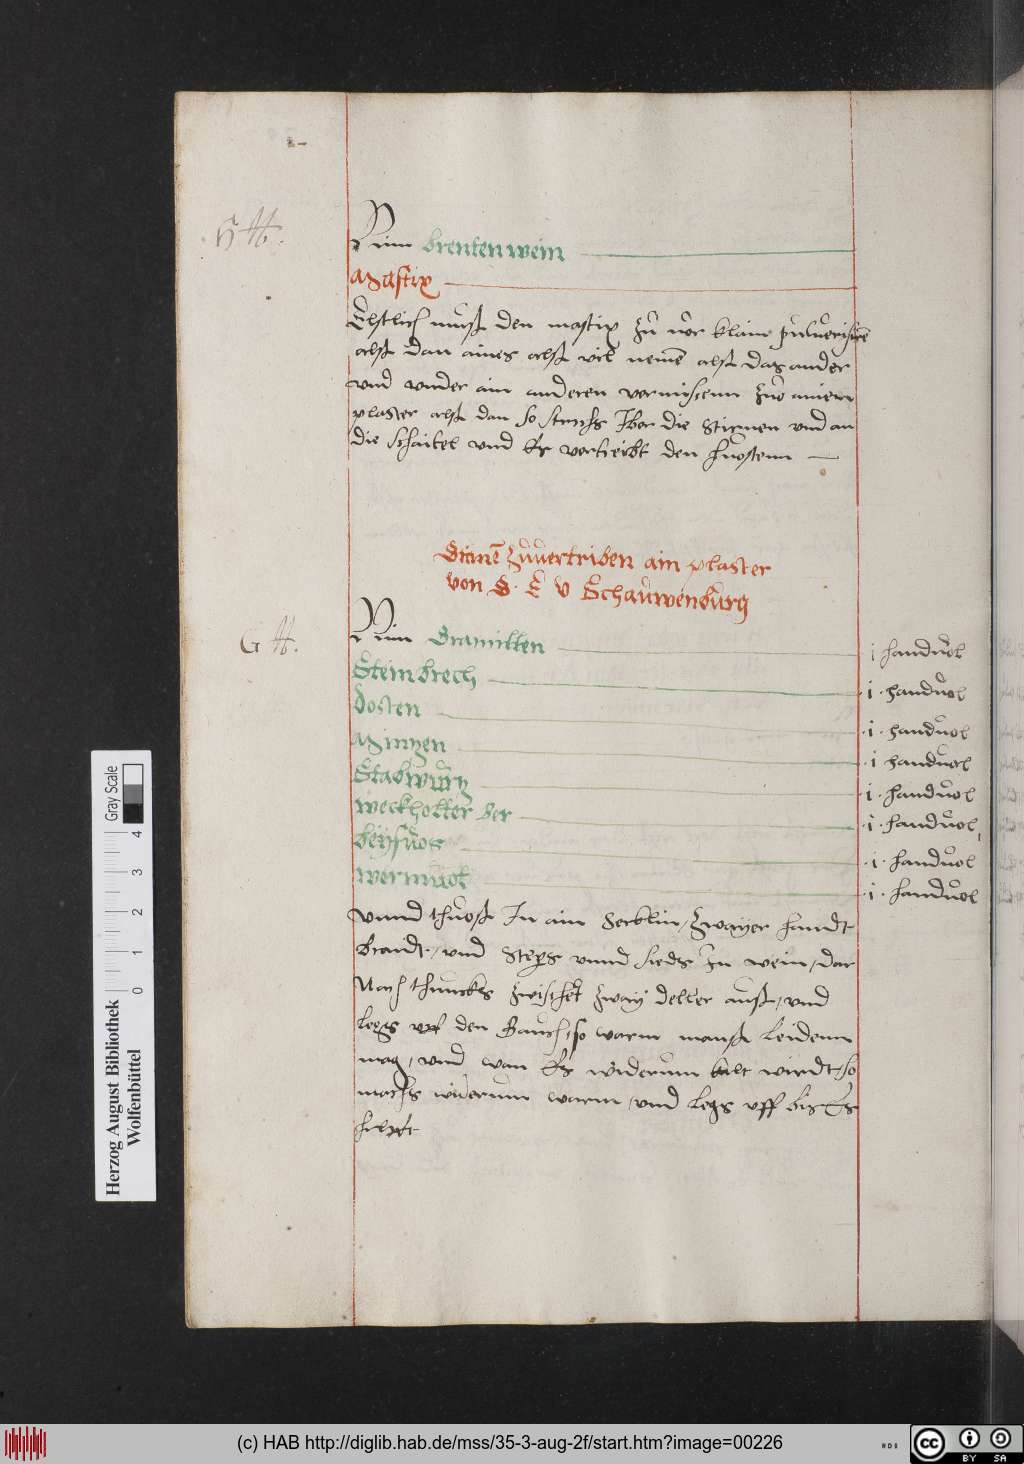 Nim brentenwein
Mastix
Erstlich muß den mastix zu vor klain pulverisirē
alß dan aines alß vil nemē alß das ander
vnd vnder ain anderen vermiscenn zuo ainem
plaster alß dan so streichs Iber die Stirnen vnd an
die schaitel vnd Es vertreibt den huostenn
Stainē zuvertriben ain plaster
von D. E v Schauwenburg
G H.
Nim Dramillen i handvol
Steinbrech i handvol
Dosten i handvol
Minzen i handvol
Stabwurz i handvol
Weckholter ber i handvol
Beyfuos i handvol
Wermudt i handvol
vnnd thuoß In ain Secklin / zwayer handt
braidt / vnd Steps vnnd sieds In wein / dar
Nach thruckhs zwischet zway deller auß / vnd
legs vff den Bauch / so warm manß leidenn
mag / vnd wan Es widerum kalt wirdt / so
machs widerum warm / vnd legs vff bis Es
hilfft
Herzog August Bibliothek
Wolfenbüttel
0 1 2 3 4
Gray Scale
(c) HAB http://diglib.hab.de/mss/35-3-aug-2f/start.htm?image=00226
cc BY SA